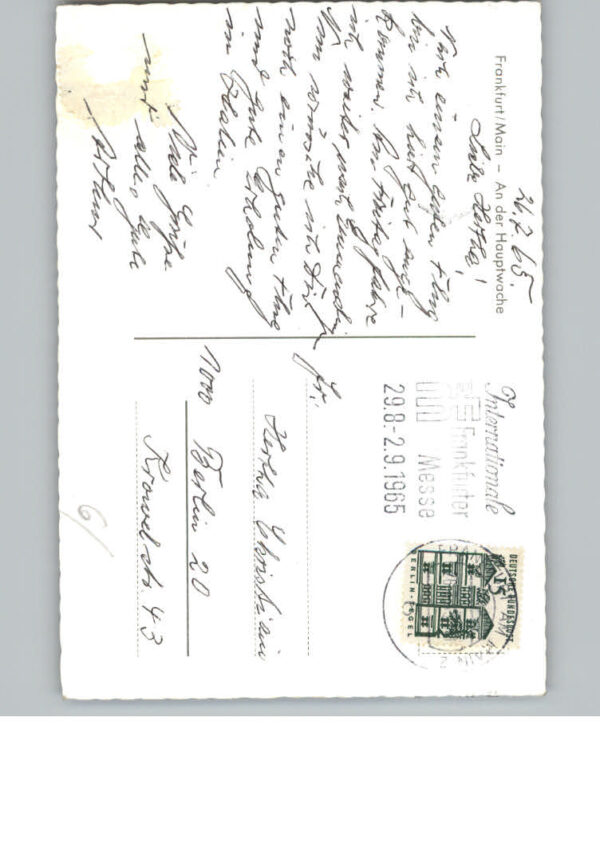 Frankfurt/Main – An der Hauptwache
24.7.65.
Liebe Hertha!
Nach einem guten Flug
bin ich hier gut ange-
kommen. Am Freitag fahre
ich weiter nach
Nun wünsche ich Dir
noch einen guten Flug
und gute Erholung
in
Viele Grüße
und alles Gute
Arthur
Internationale
Frankfurter
Messe
29.8.-2.9.1965
DEUTSCHE BUNDESPOST
15
BERLIN-TEGEL
Fr.
Hertha Christiani
1000 Berlin 20
Krowelstr. 43
6/